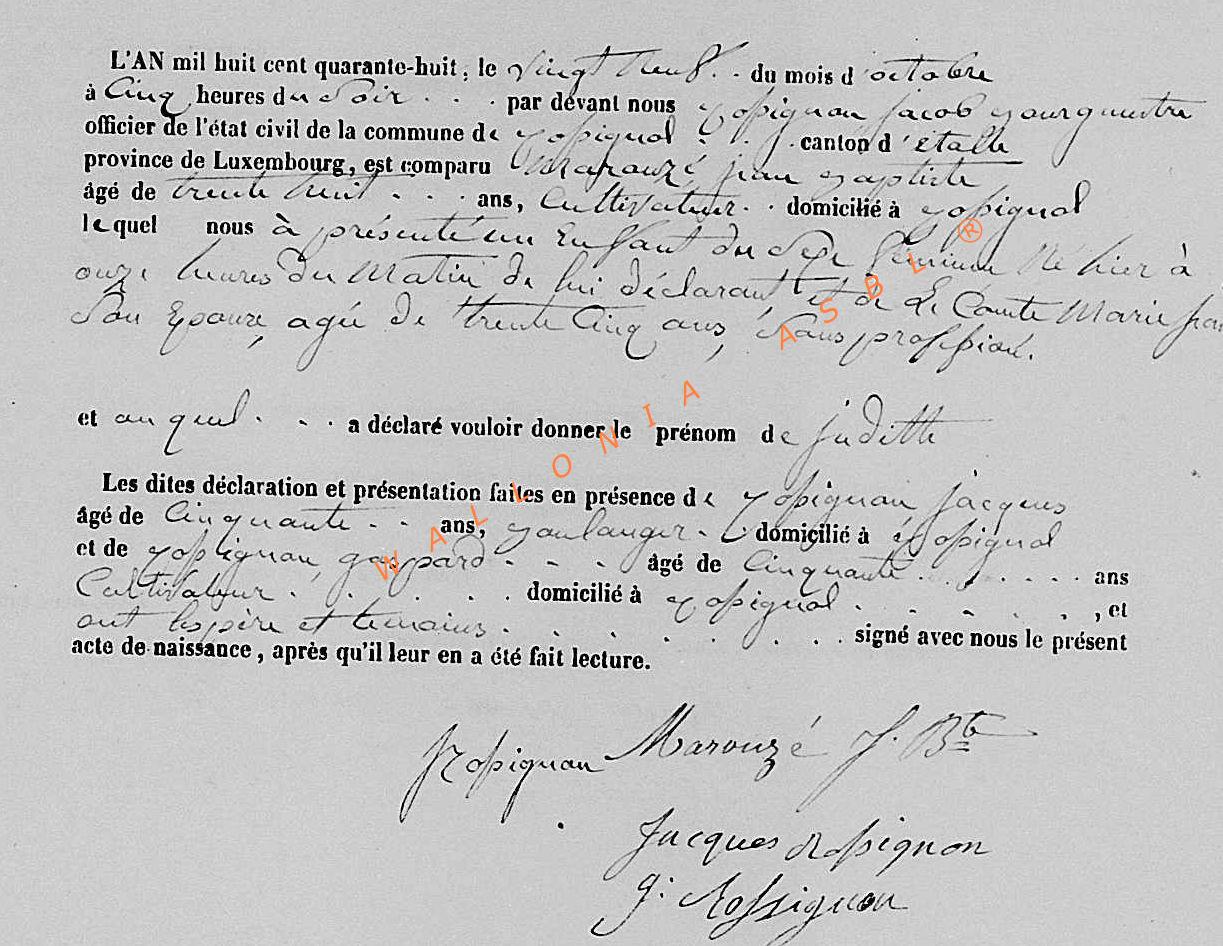 L'AN mil huit cent quarante-huit, le vingt neuf . . du mois d'octobre
à Cinq heures du Soir . . . par devant nous Rossignon jacob Bourguestre
officier de l'état civil de la commune de Rossignol . . . canton d'étalle
province de Luxembourg, est comparu Marouzé jean Baptiste
âgé de trente huit . . . ans, Cultivateur . . domicilié à Rossignol
lequel nous à présenté un Enfant du Sexe féminin Né hier à
onze heures du Matin de lui déclarant et de Le Comte Marie
Son Epouse, agée de trente Cinq ans, Sans profession.
et au quel . . . a déclaré vouloir donner le prénom de juditte
Les dites déclaration et présentation faites en présence de Rossignon jacques
âgé de Cinquante . . ans, Boulanger . domicilié à Rossignol
et de Rossignon, gaspard . . . âgé de Cinquante . . . . . . ans
Cultivateur . . . . . domicilié à Rossignol . . . . . , et
ont les père et temoins . . . . . . . . . signé avec nous le présent
acte de naissance, après qu'il leur en a été fait lecture.
Rossignon Marouzé J. Bte
Jacques Rossignon
g: Rossignon
WALLONIA ASBL ®